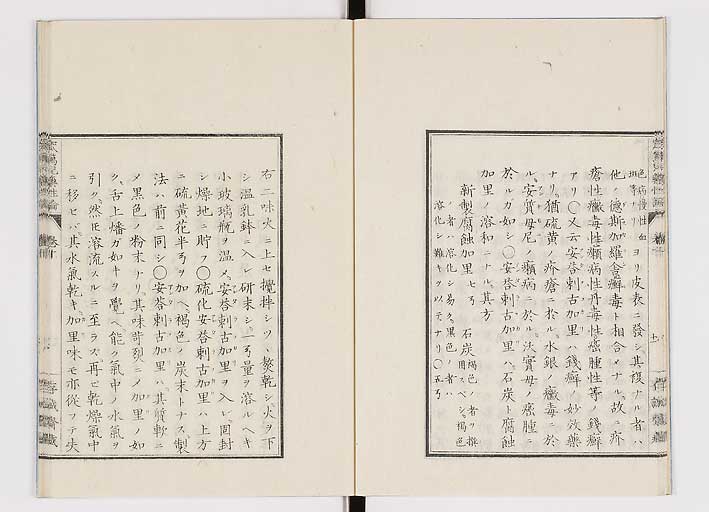 色病慢性血
斑等ナリ ヨリ皮表ニ發シ其複ナル者ハ
他ノ德斯加羅 癬毒ト相合メナル故ニ疥
瘡性黴毒性癩病性丹毒性癌腫性等ノ錢癬
アリ〇又云安荅剌古加里ハ錢癬ノ妙效藥
ナリ猶硫黄ノ疥瘡ニ於ル水銀ノ黴毒ニ於
ル安質母尼ノ癩病ニ於ル沃實母ノ瘰腫ニ
於ルガ如シ〇安荅剌古加里ハ石炭ト腐蝕
加里ノ溶和ニナル其方
新製腐蝕加里 七ヲ 石炭 褐色ノ者ヲ撰用スベシ褐色
ノ者ハ溶化シ易ク黒色ノ者ハ
溶化シ難キヲ以テナリ〇五ヲ
右二味火ニ上セ攪拌シツヽ熬乾シ火ヲ下
シ温乳鉢ニ入レ研末シ一弓量ヲ溶ルヘキ
小玻璃瓶ヲ温メ安荅剌古加里ヲ入レ固封
シ燥地ニ貯フ〇硫化安荅剌古加里ハ上方
ニ硫黄花半弓ヲ加ヘ褐色ノ炭末トナス製
法ハ前ニ同シ〇安荅剌古加里ハ其質軟ニ
メ黒色ノ粉末ナリ其味苛烈ニメ加里ノ如
ク舌上燔カ如キヲ覺ヘ能ク氣中ノ水氣ヲ
引ク然𪜈溶流スルニ至ラス再ヒ乾燥氣中
ニ移セバ其水氣乾キ加里味モ亦從フテ失